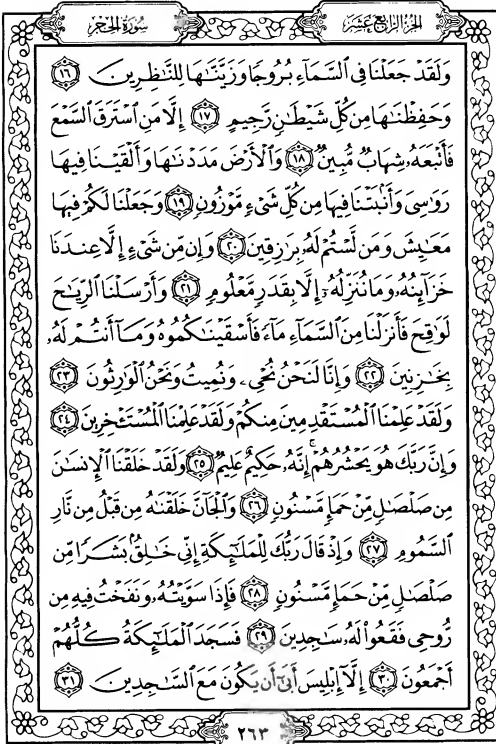 الجزء الرابع عشر
سورة الحجر
وَلَقَدْ جَعَلْنَا فِى ٱلسَّمَآءِ بُرُوجًا وَزَيَّنَّـٰهَا لِلنَّـٰظِرِينَ ١٦
وَحَفِظْنَـٰهَا مِن كُلِّ شَيْطَـٰنٍ رَّجِيمٍ ١٧ إِلَّا مَنِ ٱسْتَرَقَ ٱلسَّمْعَ
فَأَتْبَعَهُۥ شِهَابٌ مُّبِينٌ ١٨ وَٱلْأَرْضَ مَدَدْنَـٰهَا وَأَلْقَيْنَا فِيهَا
رَوَٰسِىَ وَأَنۢبَتْنَا فِيهَا مِن كُلِّ شَىْءٍ مَّوْزُونٍ ١٩ وَجَعَلْنَا لَكُمْ فِيهَا
مَعَـٰيِشَ وَمَن لَّسْتُمْ لَهُۥ بِرَٰزِقِينَ ٢٠ وَإِن مِّن شَىْءٍ إِلَّا عِندَنَا
خَزَآئِنُهُۥ وَمَا نُنَزِّلُهُۥٓ إِلَّا بِقَدَرٍ مَّعْلُومٍ ٢١ وَأَرْسَلْنَا ٱلرِّيَـٰحَ
لَوَٰقِحَ فَأَنزَلْنَا مِنَ ٱلسَّمَآءِ مَآءً فَأَسْقَيْنَـٰكُمُوهُ وَمَآ أَنتُمْ لَهُۥ
بِخَـٰزِنِينَ ٢٢ وَإِنَّا لَنَحْنُ نُحْىِۦ وَنُمِيتُ وَنَحْنُ ٱلْوَٰرِثُونَ ٢٣
وَلَقَدْ عَلِمْنَا ٱلْمُسْتَقْدِمِينَ مِنكُمْ وَلَقَدْ عَلِمْنَا ٱلْمُسْتَـْٔخِرِينَ ٢٤
وَإِنَّ رَبَّكَ هُوَ يَحْشُرُهُمْ ۚ إِنَّهُۥ حَكِيمٌ عَلِيمٌ ٢٥ وَلَقَدْ خَلَقْنَا ٱلْإِنسَـٰنَ
مِن صَلْصَـٰلٍ مِّنْ حَمَإٍ مَّسْنُونٍ ٢٦ وَٱلْجَآنَّ خَلَقْنَـٰهُ مِن قَبْلُ مِن نَّارِ
ٱلسَّمُومِ ٢٧ وَإِذْ قَالَ رَبُّكَ لِلْمَلَـٰٓئِكَةِ إِنِّى خَـٰلِقٌۢ بَشَرًا مِّن
صَلْصَـٰلٍ مِّنْ حَمَإٍ مَّسْنُونٍ ٢٨ فَإِذَا سَوَّيْتُهُۥ وَنَفَخْتُ فِيهِ مِن
رُّوحِى فَقَعُوا۟ لَهُۥ سَـٰجِدِينَ ٢٩ فَسَجَدَ ٱلْمَلَـٰٓئِكَةُ كُلُّهُمْ
أَجْمَعُونَ ٣٠ إِلَّآ إِبْلِيسَ أَبَىٰٓ أَن يَكُونَ مَعَ ٱلسَّـٰجِدِينَ ٣١
٢٦٣